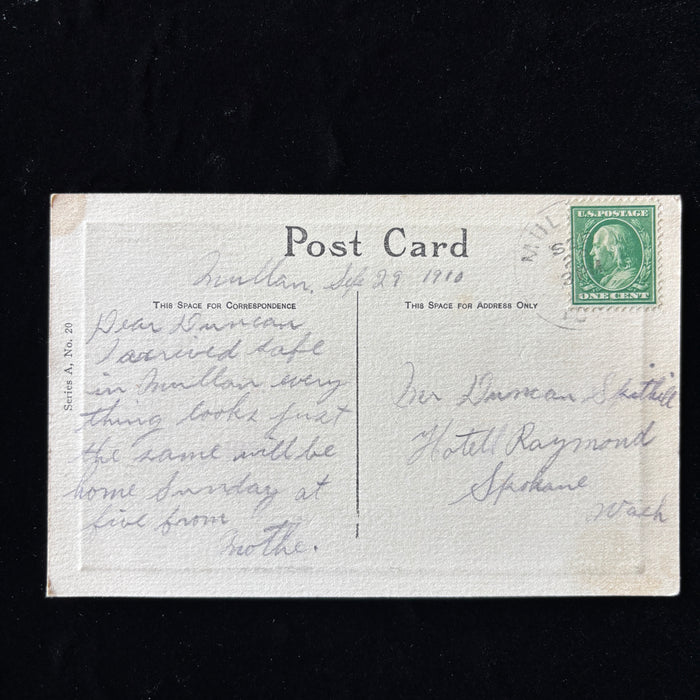 Post Card
Mullan, Sep 29 1910
THIS SPACE FOR CORRESPONDENCE
THIS SPACE FOR ADDRESS ONLY
Series A, No. 20
Dear Duncan
I arrived safe
in Mullan every
thing looks just
the same will be
home Sunday at
five from
Mothe.
U.S. POSTAGE
ONE CENT
MUL
Mr Duncan
Hotell Raymond
Spokane
Wash